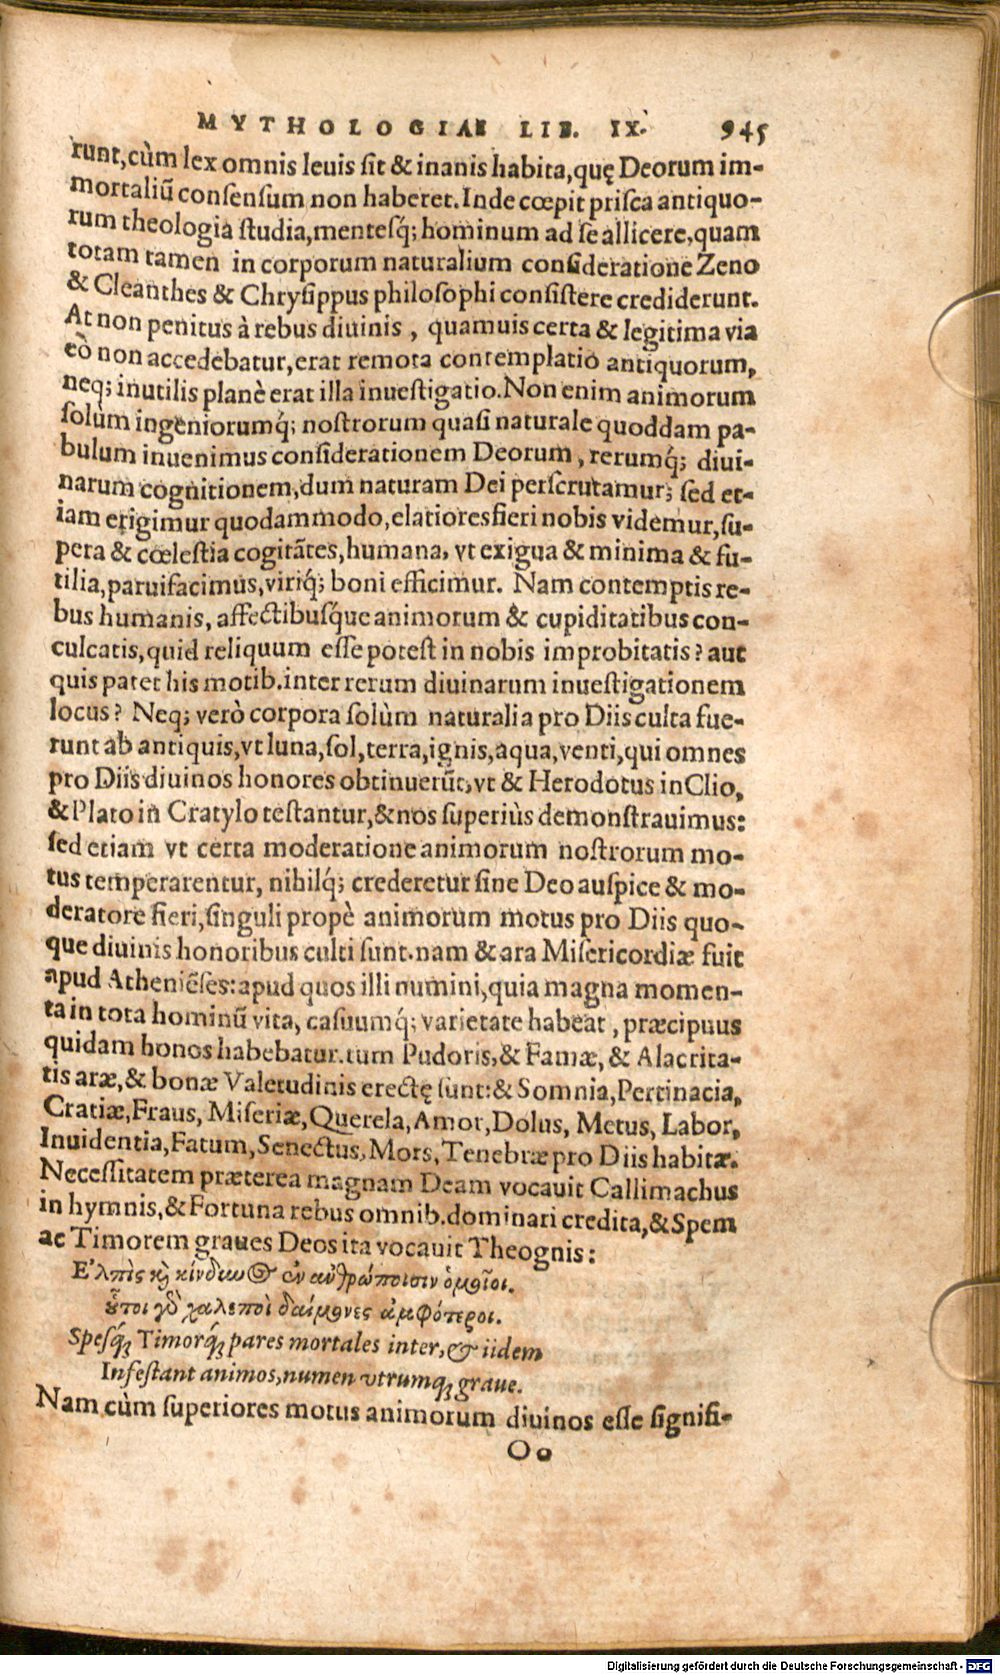 MYTHOLOGIAE LIB. IX. 945
runt, cùm lex omnis leuis sit & inanis habita, quę Deorum im-
mortaliũ consensum non haberet. Inde cœpit prisca antiquo-
rum theologia studia, mentesq́; hominum ad se allicere, quam
totam tamen in corporum naturalium consideratione Zeno
& Cleanthes & Chrysippus philosophi consistere crediderunt.
At non penitus à rebus diuinis, quamuis certa & legitima via
eò non accedebatur, erat remota contemplatio antiquorum,
neq; inutilis planè erat illa inuestigatio. Non enim animorum
solùm ingeniorumq́; nostrorum quasi naturale quoddam pa-
bulum inuenimus considerationem Deorum, rerumq́; diui-
narum cognitionem, dum naturam Dei perscrutamur; sed et-
iam erigimur quodammodo, elatiores fieri nobis videmur, su-
pera & cœlestia cogitãtes, humana, vt exigua & minima & fu-
tilia, paruifacimus, viriq́; boni efficimur. Nam contemptis re-
bus humanis, affectibusq́ue animorum & cupiditatibus con-
culcatis, quid reliquum esse potest in nobis improbitatis? aut
quis patet his motib. inter rerum diuinarum inuestigationem
locus? Neq; verò corpora solùm naturalia pro Diis culta fue-
runt ab antiquis, vt luna, sol, terra, ignis, aqua, venti, qui omnes
pro Diis diuinos honores obtinuerũt, vt & Herodotus in Clio,
& Plato in Cratylo testantur, & nos superiùs demonstrauimus:
sed etiam vt certa moderatione animorum nostrorum mo-
tus temperarentur, nihilq́; crederetur sine Deo auspice & mo-
deratore fieri, singuli propè animorum motus pro Diis quo-
que diuinis honoribus culti sunt. nam & ara Misericordiæ fuit
apud Atheniẽses: apud quos illi numini, quia magna momen-
ta in tota hominũ vita, casuumq́; varietate habeat, præcipuus
quidam honos habebatur. tum Pudoris, & Famæ, & Alacrita-
tis aræ, & bonæ Valetudinis erectę sunt: & Somnia, Pertinacia,
Cratiæ, Fraus, Miseriæ, Querela, Amor, Dolus, Metus, Labor,
Inuidentia, Fatum, Senectus, Mors, Tenebræ pro Diis habitæ.
Necessitatem præterea magnam Deam vocauit Callimachus
in hymnis, & Fortuna rebus omnib. dominari credita, & Spem
ac Timorem graues Deos ita vocauit Theognis:
Ε᾿λπὶς κὶ κίνδυνος ἐν ἀνθρώποισιν ὁμοῖοι.
οὗτοι γὸ χαλεποὶ δαίμονες ἀμφότεροι.
Spesq́; Timorq́; pares mortales inter, & iidem
Infestant animos, numen vtrumq; graue.
Nam cùm superiores motus animorum diuinos esse signifi-
Oo
Digitalisierung gefördert durch die Deutsche Forschungsgemeinschaft - DFG